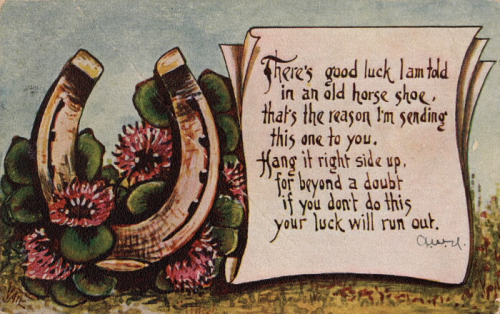 There's good luck I am told
in an old horse shoe,
that's the reason I'm sending
this one to you.
Hang it right side up,
for beyond a doubt
if you don't do this
your luck will run out.